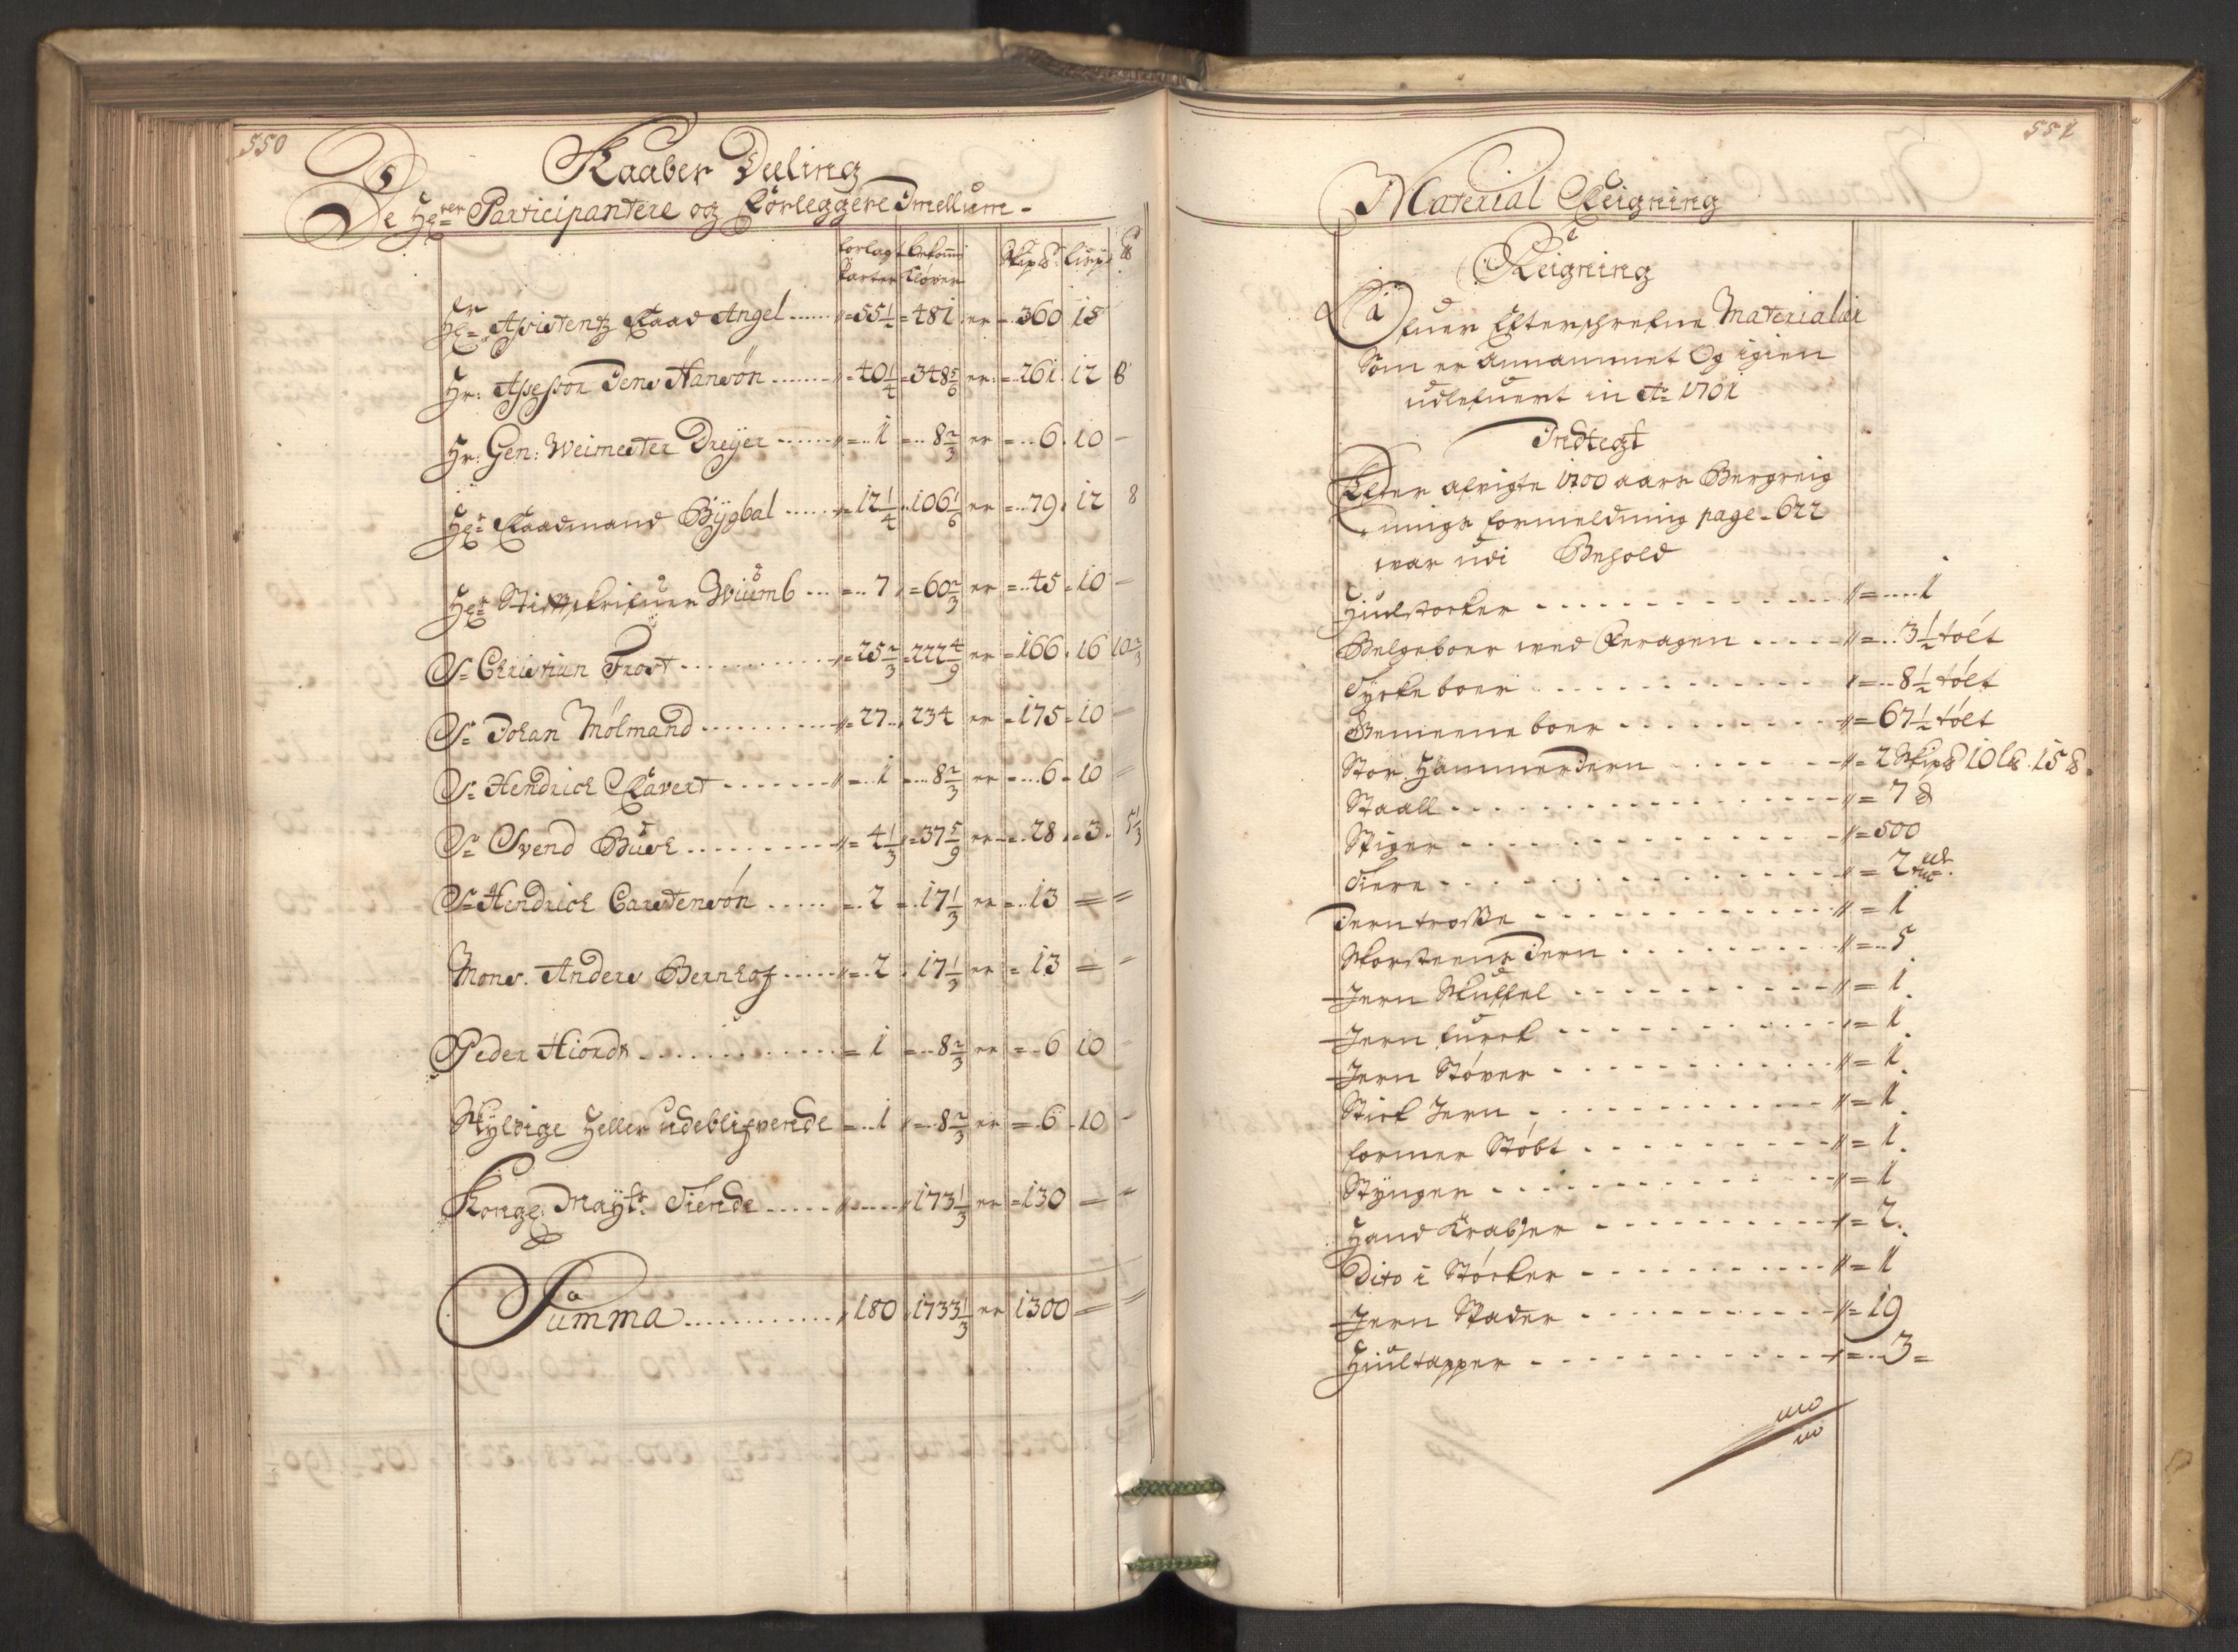 550
Kaaber Deeling
De Hr:rer Participantere og Forleggere Imellum-
forlagt bekom̄ Skip℔: Lisp: ℔
Parter Kløver
Hr: Assistentz Raad Angel ...... 55½ = 481 er = 360 15
Hr: Assessor Jens Hansøn ....... 40¼ = 348⅚ er = 261 12 8
Hr: Gen: Weimester Dreÿer ...... 1 = 8⅔ er = 6 10 -
Hr: Raadmand Bÿgbal ..... 12¼ 106⅙ er = 79 12 8
Hr: Wiumb ... 7 = 60⅔ er = 45 10 -
Sr: Christian Frost ........... 25⅔ = 222 4/9 er = 166 16 10⅔
Sr: Johan Mölmand .......... 27 234 er = 175 10 -
Sr: Hendrich Kavert ....... 1 8⅔ er = 6 10 =
Sr: Svend Busch .......... 4⅓ = 37 5/9 er = 28 3 5⅓
Sr: Hendrich Carstensón ..... 2 = 17⅓ er = 13 = =
Mons. Anders Bernhof ..... 2 17⅓ er = 13 = -
Peder Hiordt ............. 1 = 8⅔ er = 6 10 -
Skyldige Heller udeblifvende = 1 = 8⅔ er = 6 10 -
Kongl: Maÿts: Tiende ..... 173⅓ er = 130 = =
Summa ............ 180 1733⅓ er 1300 = =
551
Material Reigning
Reigning
Ofuer Efterschrefne Materialier
Som er annammet Og igien
udlefuert in Ao 1701
Indtegt
Efter afvigte 1700 aars Bergreig
nings formeldning page. 622
war udi Behold
Hiulstocker ............ = 1
Belgeboer wed Feragen ..... = 3½ tólt
Tÿcke boer ............ = 8½ tólt
Gemeene boer ......... = 67½ tólt
Stor Hammer Jern ...... = 2 Skip℔ 10 L℔ 15 ℔.
Staall ................ = 7 ℔
Spiger ............... = 500
Tiere ................ = 2
Jerntrosse ............ = 1
Skorsteens Jern ......... = 5
Jern Skuffel .......... = 1
Jern furck ........... = 1
Jern Stóver ........... = 1
Stick Jern ........... = 1
former Stóbt ......... = 1
Stÿnger ............. = 1
Hand Krabser .......... = 2
Dito i Stócker .......... = 1
Jern Spader .......... = 19
Hiultapper ............ = 3 =